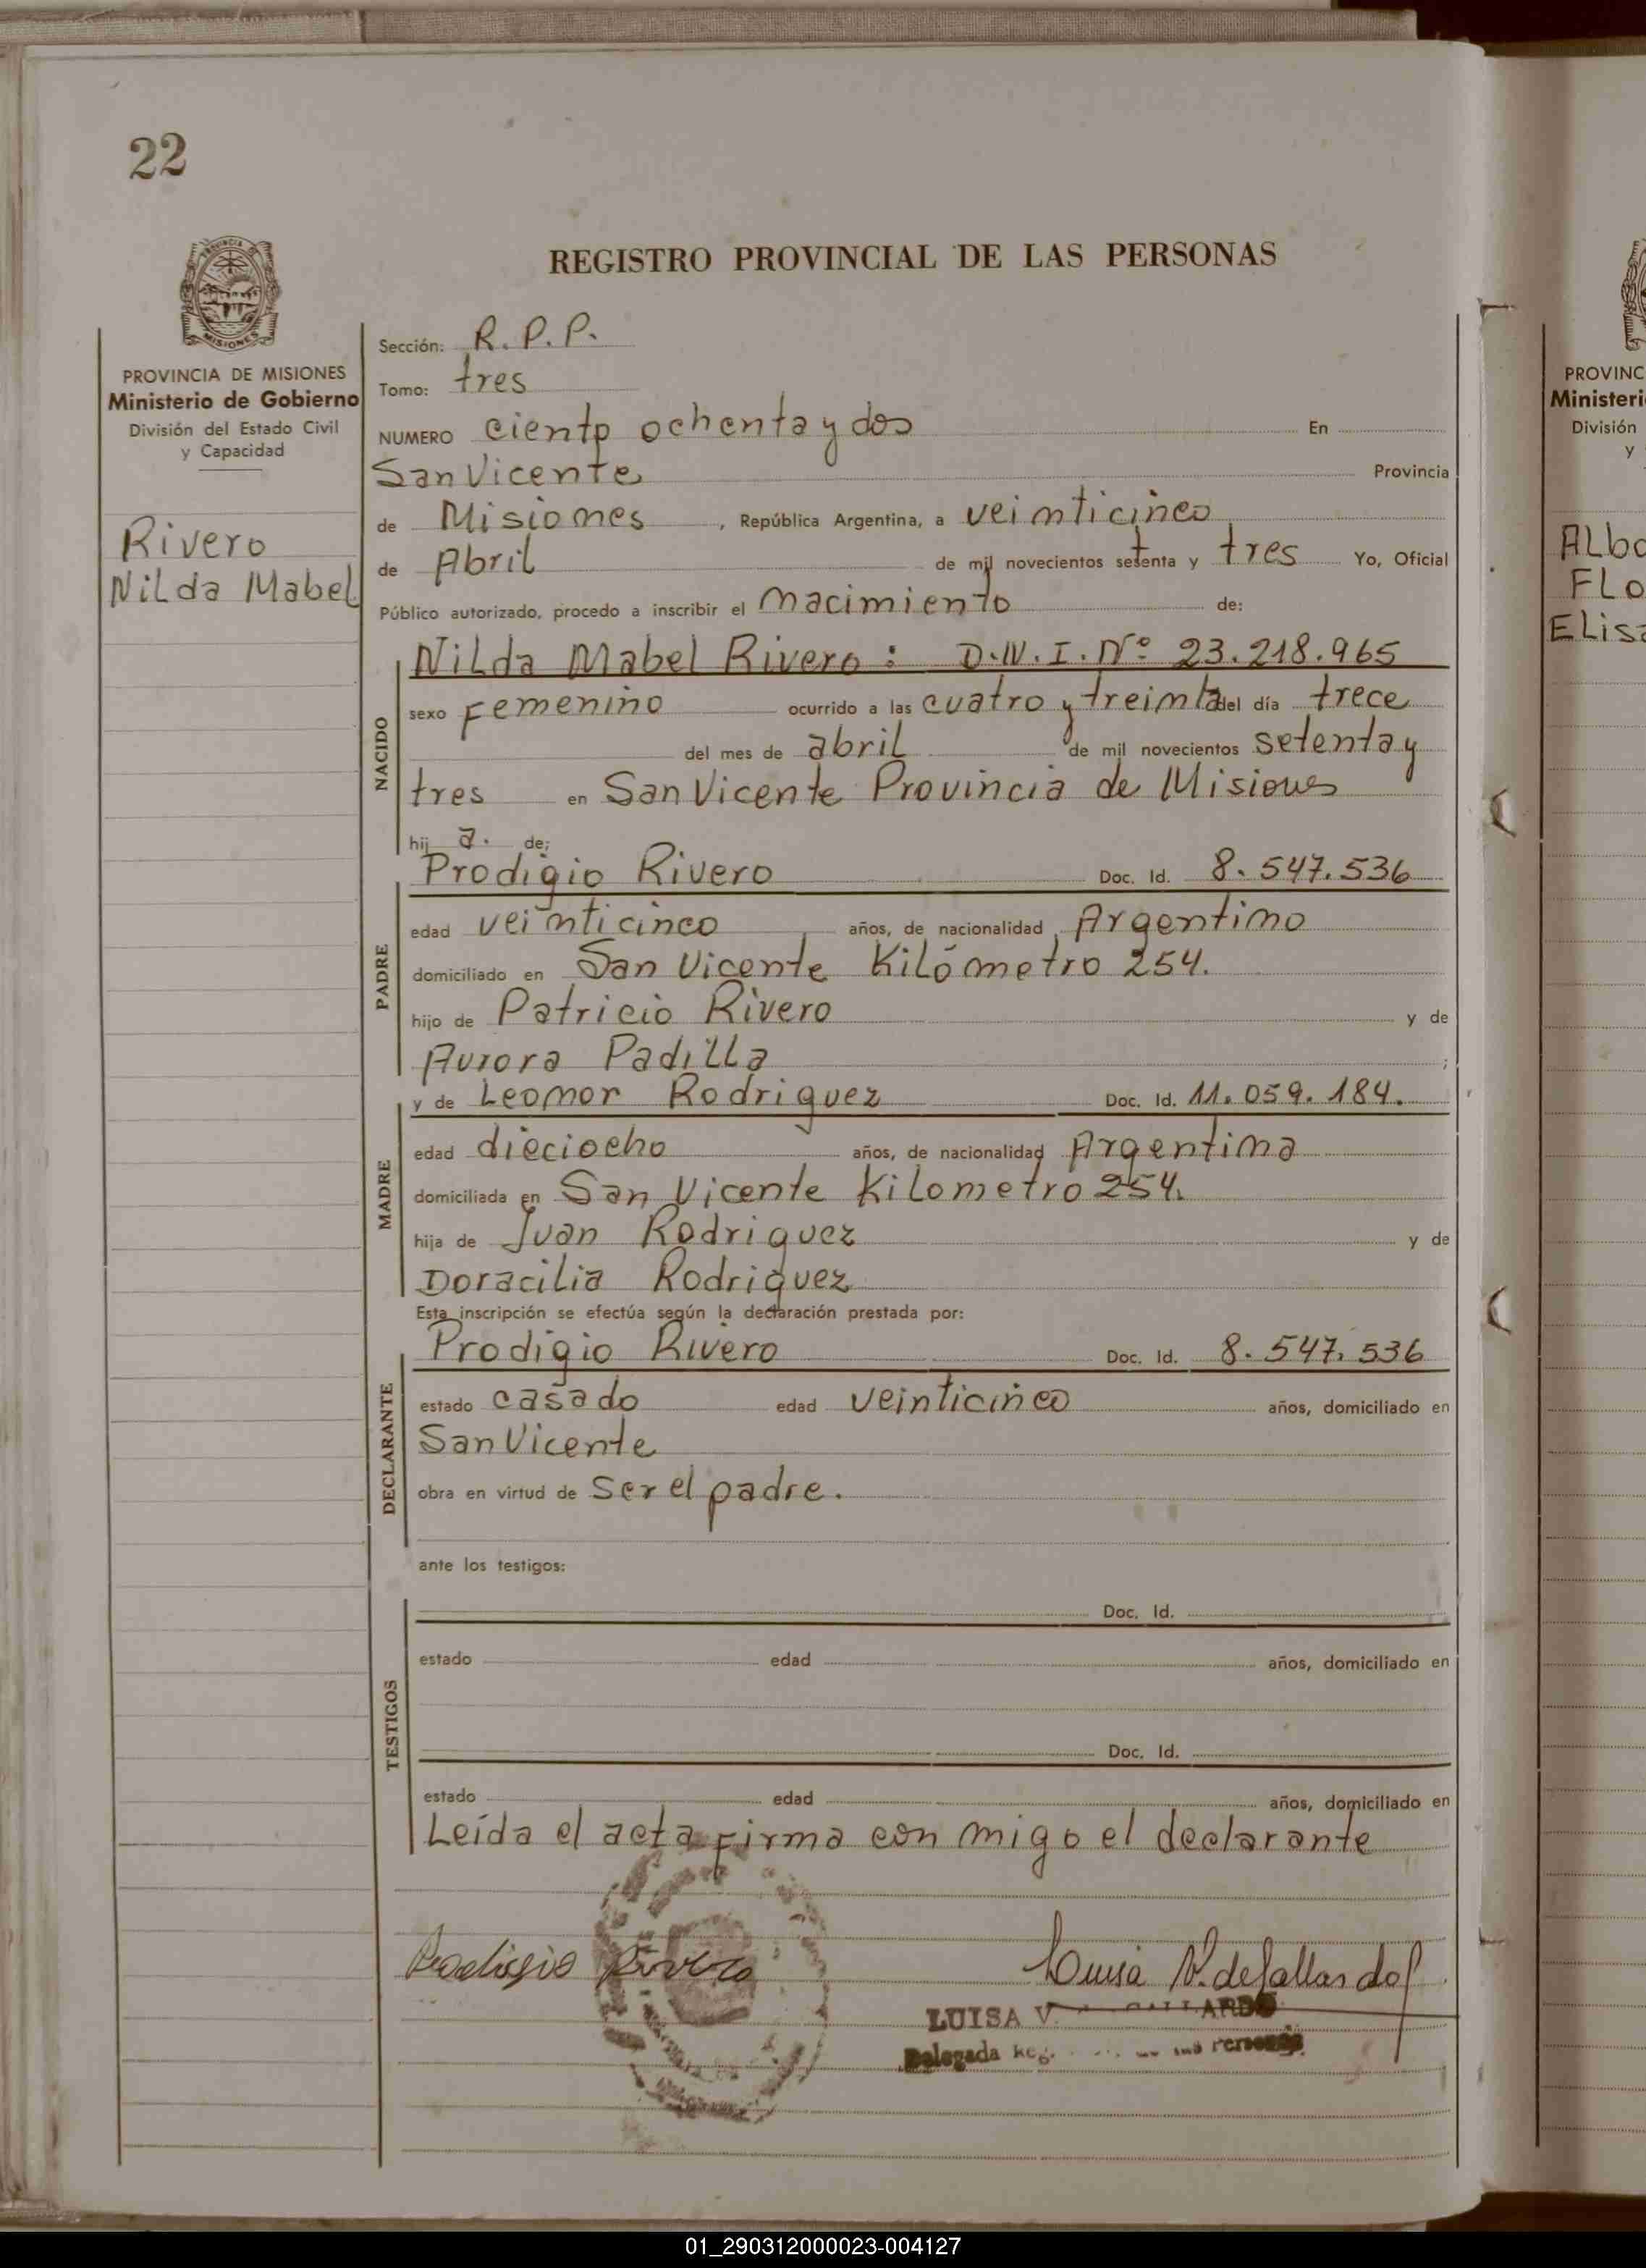 22
REGISTRO PROVINCIAL DE LAS PERSONAS
PROVINCIA DE MISIONES
Ministerio de Gobierno
División del Estado Civil
y Capacidad
Rivero
Nilda Mabel
Sección: R. P. P.
Tomo: tres
NUMERO ciento ochenta y dos En
San Vicente Provincia
de Misiones, República Argentina, a veinticinco
de Abril de mil novecientos setenta y tres Yo, Oficial
Público autorizado, procedo a inscribir el nacimiento de:
NACIDO
Nilda Mabel Rivero: D.N.I. Nº 23.218.965
sexo Femenino ocurrido a las cuatro y treinta del día trece
del mes de abril de mil novecientos setenta y
tres en San Vicente Provincia de Misiones
hij a. de;
PADRE
Prodigio Rivero Doc. Id. 8.547.536
edad veinticinco años, de nacionalidad Argentino
domiciliado en San Vicente Kilómetro 254.
hijo de Patricio Rivero y de
Aurora Padilla ;
MADRE
y de Leonor Rodriguez Doc. Id. 11.059.184.
edad dieciocho años, de nacionalidad Argentina
domiciliada en San Vicente Kilometro 254.
hija de Juan Rodriguez y de
Doracilia Rodriguez
Esta inscripción se efectúa según la declaración prestada por:
DECLARANTE
Prodigio Rivero Doc. Id. 8.547.536
estado casado edad veinticinco años, domiciliado en
San Vicente
obra en virtud de ser el padre.
ante los testigos:
TESTIGOS
Doc. Id.
estado edad años, domiciliado en
Doc. Id.
estado edad años, domiciliado en
Leída el acta firma con migo el declarante
Prodigio Rivero
Luisa V. de Gallardo
LUISA V. GALLARDO
Delegada Reg. de las Personas
PROVINC
Ministeri
División
y
ALbo
FLo
Elisa
01_290312000023-004127